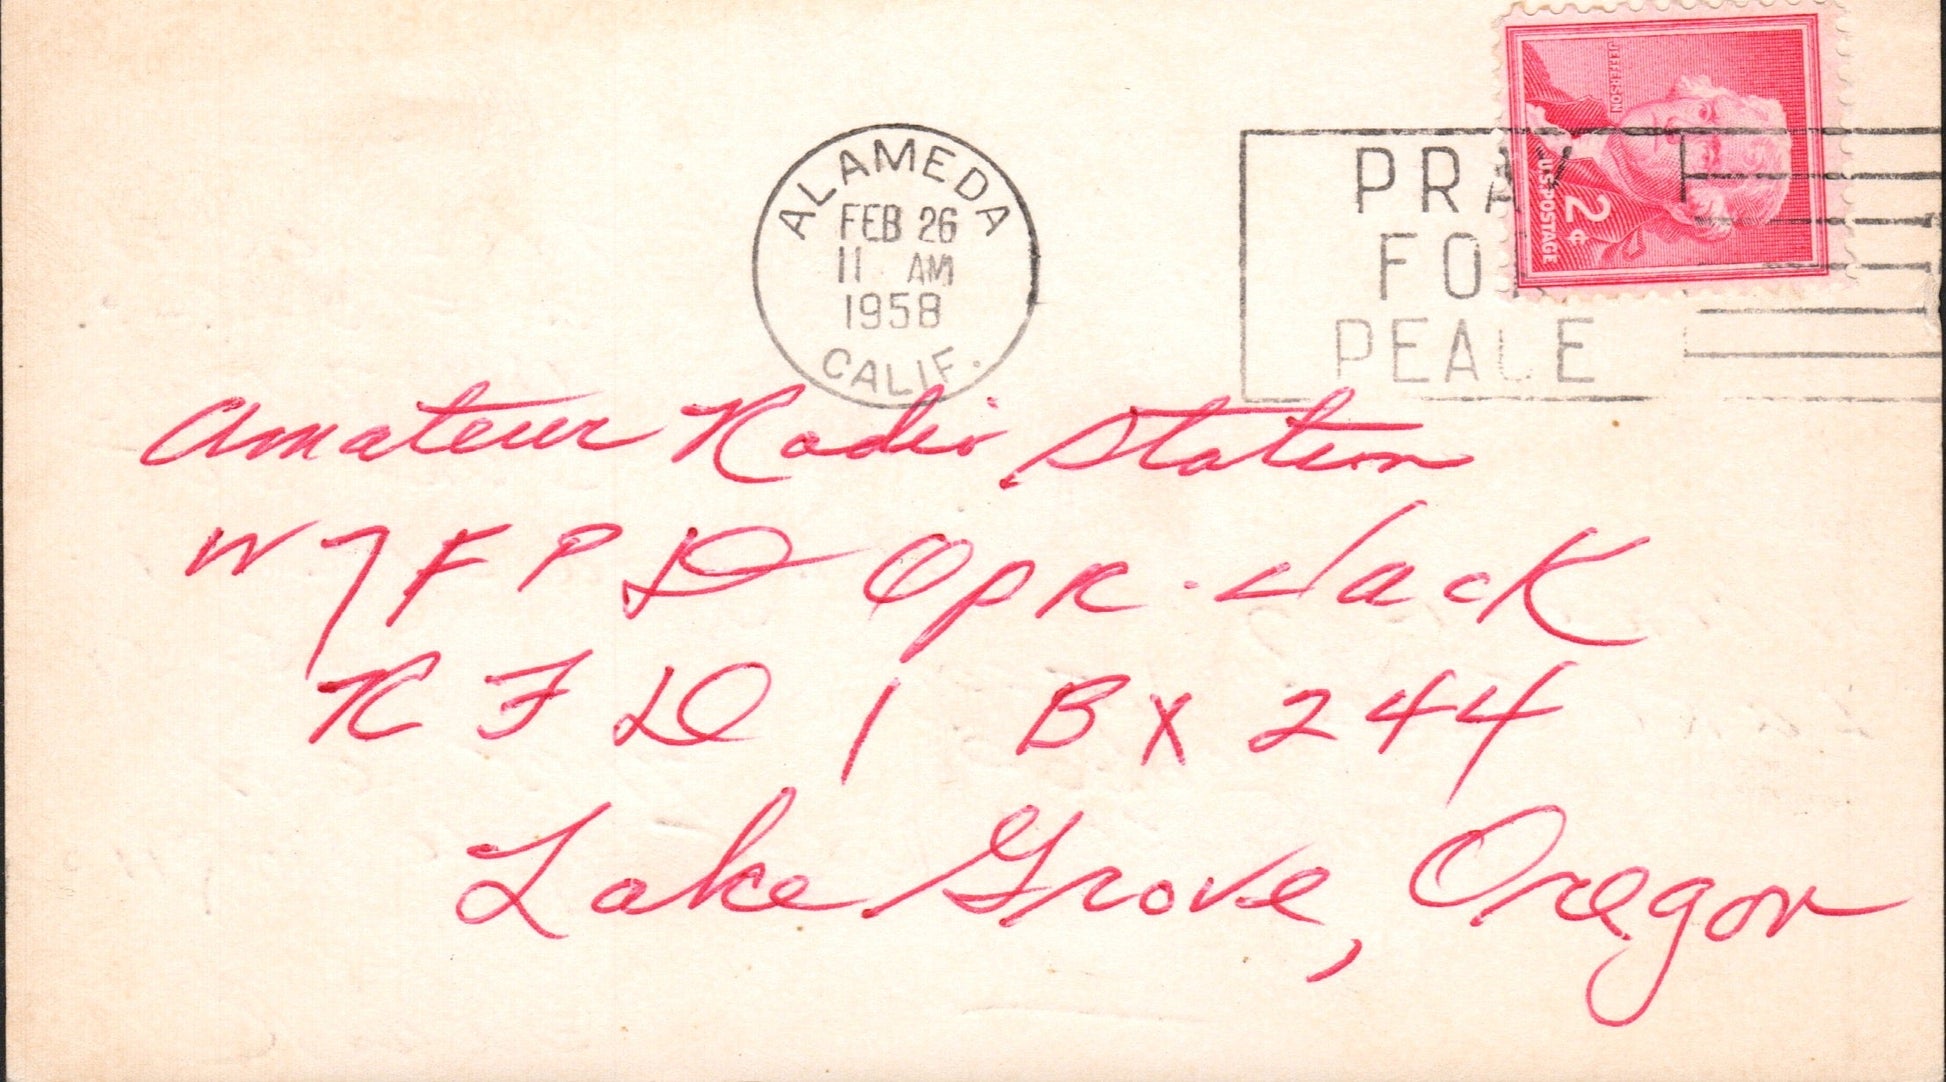 JEFFERSON
U.S. POSTAGE
2¢
ALAMEDA
FEB 26
11 AM
1958
CALIF.
PRAY
FOR
PEACE
Amateur Radio Station
W7FPD Opr. Jack
RFD 1 Bx 244
Lake Grove, Oregon